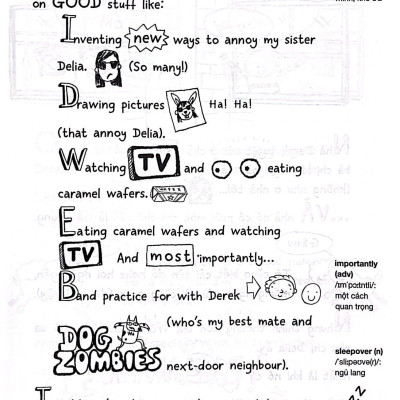 on GOOD stuff like:
Inventing new ways to annoy my sister
Delia. (So many!)
Drawing pictures Ha! Ha!
(that annoy Delia).
Watching TV and eating
caramel wafers.
Eating caramel wafers and watching
TV And most importantly...
Band practice for with Derek
(who's my best mate and
DOG ZOMBIES next-door neighbour).
importantly
(adv)
/ɪmˈpɔːtntli/:
một cách
quan trọng
sleepover (n)
/ˈsliːpəʊvə(r)/:
ngủ lang